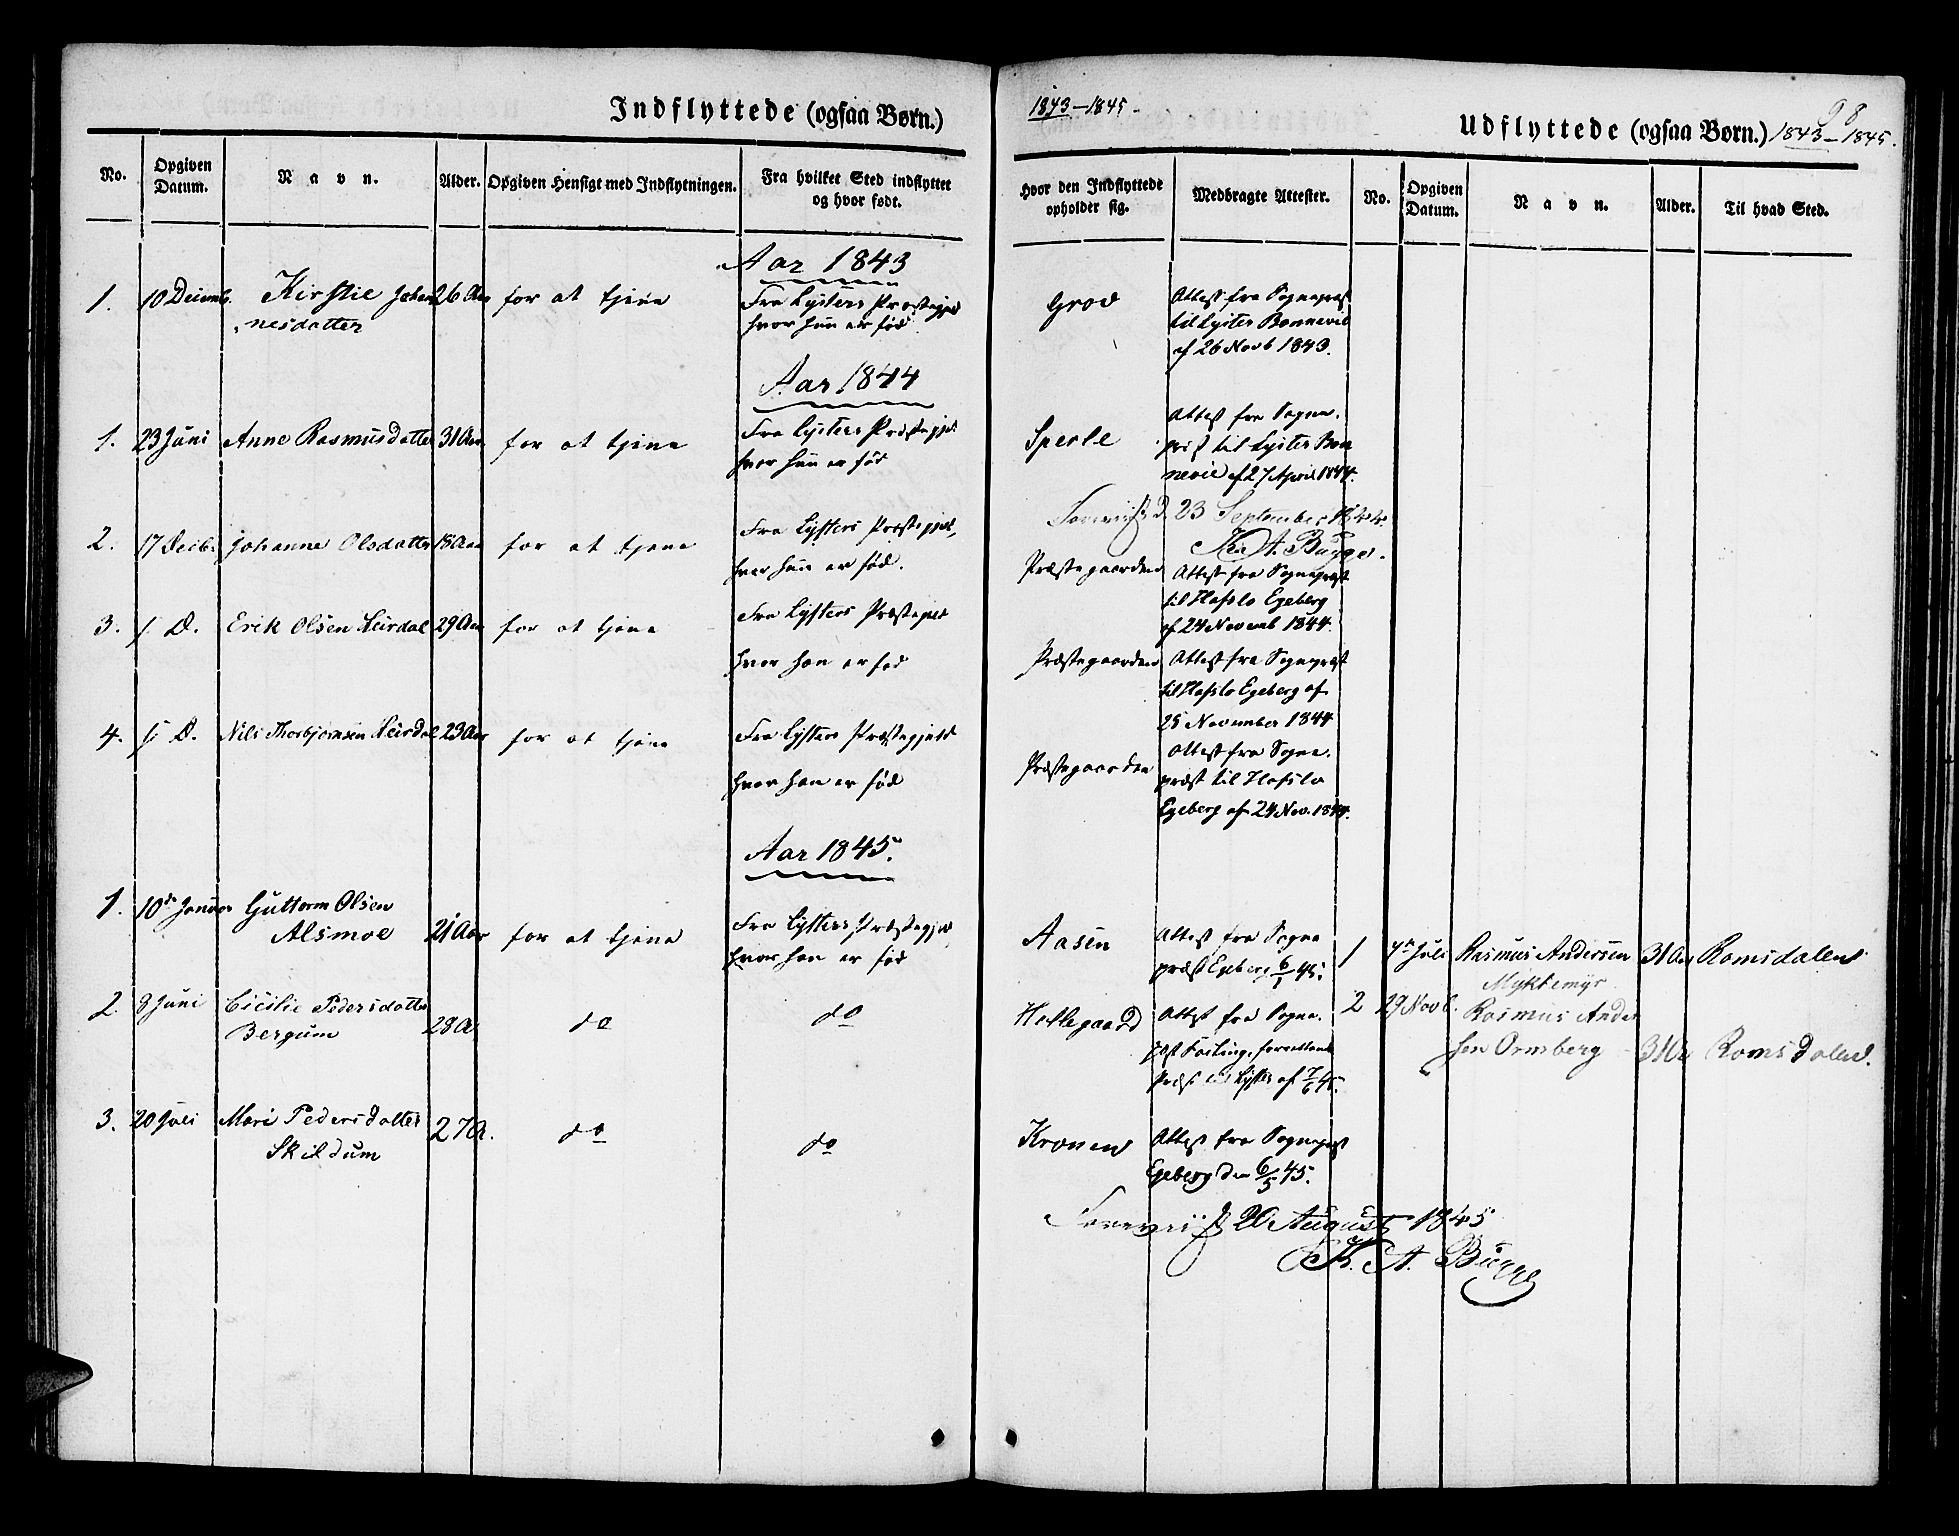 Indflyttede (ogsaa Børn.)
No.
Opgiven Datum.
Navn.
Alder.
Opgiven Hensigt med Indflytningen.
Fra hvilket Sted indflyttet og hvor født.
Aar 1843
1. 10 Decemb. Kirstie Johan 26 Aar for at tjene Fra Lysters Præstegjed
nesdatter hvor hun er fød
Aar 1844
1. 23 Juni Anne Rasmusdatter 31 Aar for at tjene Fra Lysters Præstegjel
hvor hun er fød
2. 17 Decbr Johanne Olsdatter 18 Aar for at tjene Fra Lysters Præstegjel,
hvor hun er fød.
3. s. D. Erik Olsen 29 Aar for at tjene Fra Lysters Præstegjeld
hvor han er fød
4. s. D. Nils Thorbjørnsen 23 Aar for at tjene Fra Lysters Præstegjeld
hvor han er fød
Aar 1845.
1. 10de Januar Guttorm Olsen
Alsmoe 21 Aar for at tjene Fra Lysters Præstegjel
hvor han er fød
2. 8 Juni Cicilie Pedersdatter
Bergum 28 A. do do
3. 20 Juli Mari Pedersdatter 27 A. do do
Skildum
1843–1845.
98
Udflyttede (ogsaa Børn.) 1843–1845.
Hvor den Indflyttede opholder sig.
Medbragte Attester.
No.
Opgiven Datum.
Navn.
Alder.
Til hvad Sted.
Grov Attest fra Sognepræst
til Lyster Bonnevie
af 26 Novb 1843.
Sperle Attest fra Sogne.
præst til Lyster Bon
nevie af 27 April 1844.
23 September 1844
A. Bugge.
Præstegaarden Attest fra Sognepræst
til Hafslo Egeberg
af 24 Novemb 1844.
Præstegaarden Attest fra Sognepræst
til Hafslo Egeberg af
25 November 1844
Præstegaarden Attest fra Sogne.
præst til Hafslo
Egeberg af 24 Nov. 1844.
Aasen Attest fra Sogne
præst Egeberg 6/1 45.
1 7de Juli Rasmus Andersen 31 Aar Romsdalen
Myklemyr
Hellegaard Attest fra Sogne.
2 29 Novb. Rasmus Ander
sen Ormberg 31 Romsdalen.
præst til Lyster af 7/6 45.
Kronen Attest fra Sognepræst
Egeberg den 6/5 45.
20 August 1845
K. A. Bugge